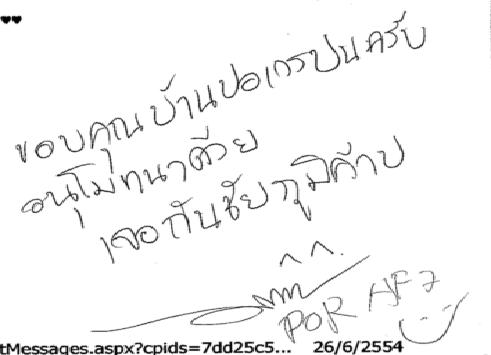 ♥♥
ขอบคุณบ้านปอเกรปนครับ
อนุโมทนาด้วย
เจอกันชัยภูมิค๊าบ
^^
POR AF7
tMessages.aspx?cpids=7dd25c5... 26/6/2554